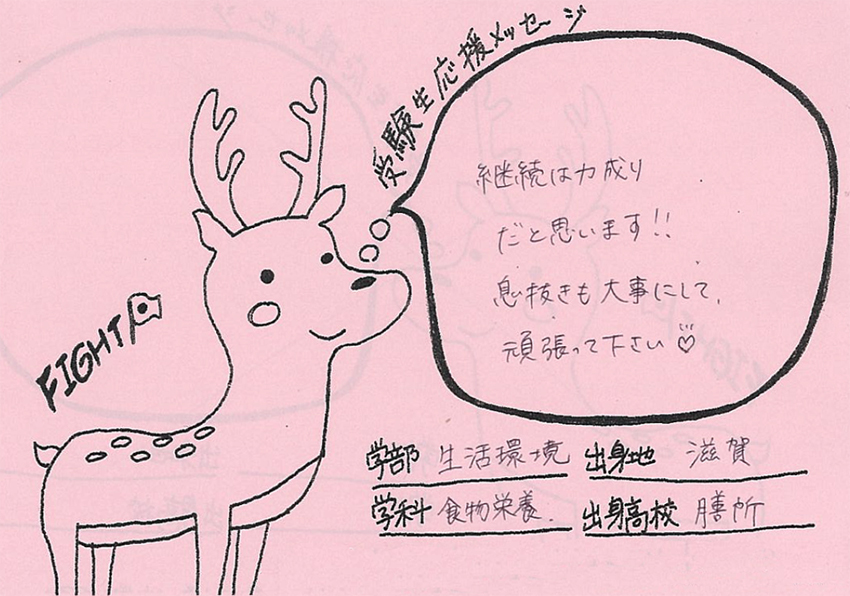 受験生応援メッセージ
継続は力成り
だと思います!!
息抜きも大事にして、
頑張って下さい♡
FIGHT
学部 生活環境 出身地 滋賀
学科 食物栄養. 出身高校 膳所